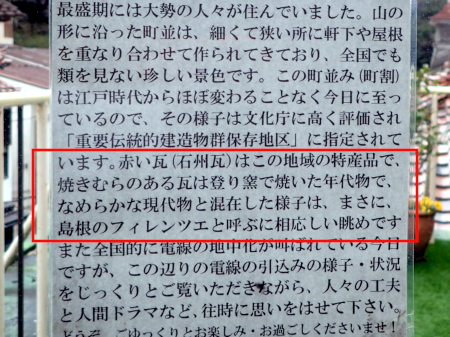 最盛期には大勢の人々が住んでいました。山の
形に沿った町並は、細くて狭い所に軒下や屋根
を重なり合わせて作られてきており、全国でも
類を見ない珍しい景色です。この町並み(町割)
は江戸時代からほぼ変わることなく今日に至っ
ているので、その様子は文化庁に高く評価され
「重要伝統的建造物群保存地区」に指定されて
います。赤い瓦(石州瓦)はこの地域の特産品で、
焼きむらのある瓦は登り窯で焼いた年代物で、
なめらかな現代物と混在した様子は、まさに、
島根のフィレンツエと呼ぶに相応しい眺めです
また全国的に電線の地中化が叫ばれている今日
ですが、この辺りの電線の引込みの様子・状況
をじっくりとご覧いただきながら、人々の工夫
と人間ドラマなど、往時に思いをはせて下さい。
どうぞ、ごゆっくりとお楽しみ・お過ごしくださいませ!